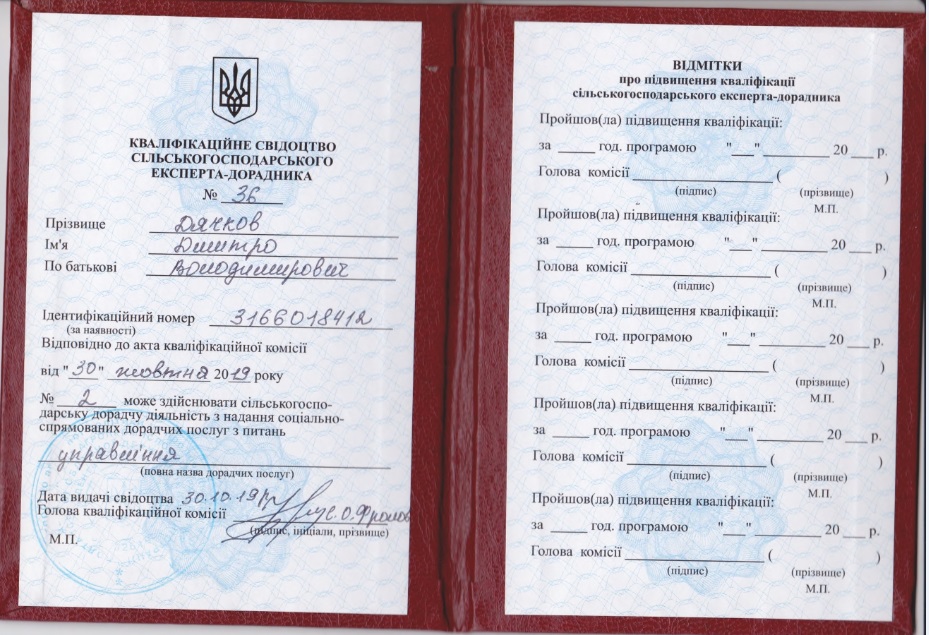 КВАЛІФІКАЦІЙНЕ СВІДОЦТВО
СІЛЬСЬКОГОСПОДАРСЬКОГО
ЕКСПЕРТА-ДОРАДНИКА
№ 36
Прізвище Дячков
Ім'я Дмитро
По батькові Володимирович
Ідентифікаційний номер 3166018412
(за наявності)
Відповідно до акта кваліфікаційної комісії
від "30" жовтня 2019 року
№ 2 може здійснювати сільськогоспо-
дарську дорадчу діяльність з надання соціально-
спрямованих дорадчих послуг з питань
управління
(повна назва дорадчих послуг)
Дата видачі свідоцтва 30.10.19р
Голова кваліфікаційної комісії С.О.Фролов
(підпис, ініціали, прізвище)
М.П.
ВІДМІТКИ
про підвищення кваліфікації
сільськогосподарського експерта-дорадника
Пройшов(ла) підвищення кваліфікації:
за _____ год. програмою "___" _________ 20 ___ р.
Голова комісії ____________________ ( )
(підпис) (прізвище)
М.П.
Пройшов(ла) підвищення кваліфікації:
за _____ год. програмою "___" _________ 20 ___ р.
Голова комісії ____________________ ( )
(підпис) (прізвище)
М.П.
Пройшов(ла) підвищення кваліфікації:
за _____ год. програмою "___" _________ 20 ___ р.
Голова комісії ____________________ ( )
(підпис) (прізвище)
М.П.
Пройшов(ла) підвищення кваліфікації:
за _____ год. програмою "___" _________ 20 ___ р.
Голова комісії ____________________ ( )
(підпис) (прізвище)
М.П.
Пройшов(ла) підвищення кваліфікації:
за _____ год. програмою "___" _________ 20 ___ р.
Голова комісії ____________________ ( )
(підпис) (прізвище)
М.П.